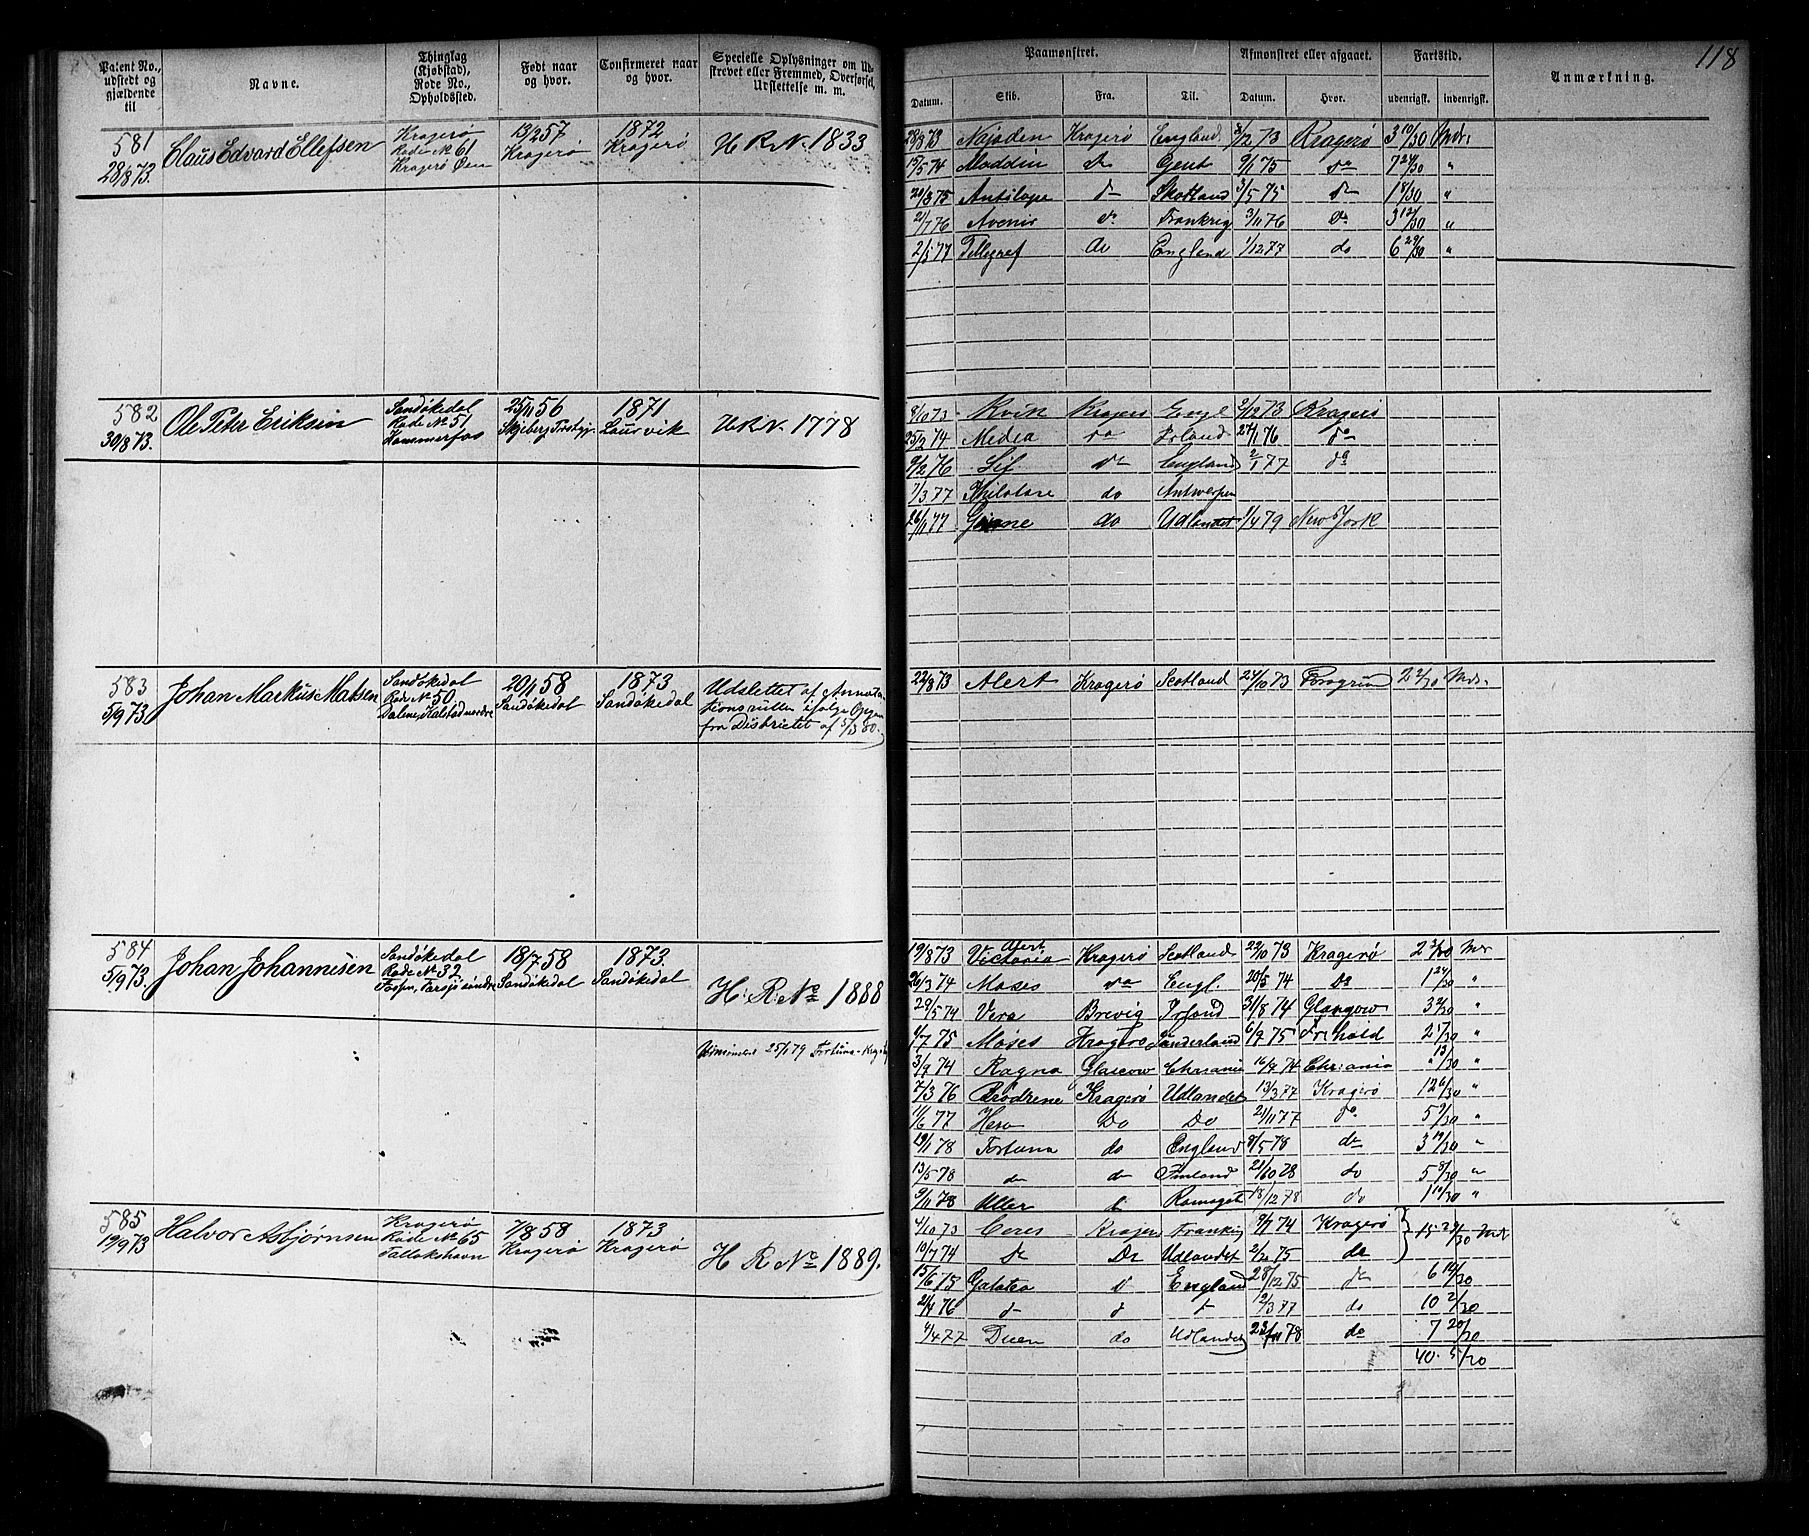 118
Patent No., udstedt og gjældende til
Navne.
Thinglag (Kjøbstad), Rode No., Opholdssted.
Født naar og hvor.
Confirmeret naar og hvor.
Specielle Oplysninger om Udskrevet eller Fremmed, Overførsel, Udslettelse m. m.
Paamønstret.
Afmønstret eller afgaaet.
Fartstid.
Anmærkning.
Datum. Skib. Fra. Til. Datum. Hvor. udenrigsk. indenrigsk.
581 28/8 73. Claus Edvard Ellefsen Kragerø Rode No 61 Kragerø Øen 13/2 57 Kragerø 1872 Kragerø H. R. N. 1833
28/8 73 Najaden Kragerø England 3/12 73 Kragerø 3 10/30 Mdr.
15/5 74 Aladdin do Gent 9/1 75 do 7 24/30 "
Antilope do Skotland 3/5 75 do 1 8/30 "
2/7 76 Avenir do Frankrig 3/11 76 do 3 12/30 "
2/5 77 Tellegraf do England 1/12 77 do 6 29/30 "
582 30/8 73. Ole Peter Eriksen Sandøkedal Rode No 51 25/11 56 Skjeberg 1871 Laurvik H. R. N. 1778
8/10 73 Kvik Kragerø Engl 2/12 73 Kragerø
25/2 74 Medea do Irland 27/1 76 do
9/2 76 Sif do England 2/1 77 do
7/3 77 do Antwerpen
26/11 77 do Udlandet 1/4 79 New York
583 5/9 73. Johan Markus Madsen Sandøkedal Rode No 50 Dalene, Kalstad nordre 20/11 58 Sandøkedal 1873 Sandøkedal
Udslettet af Annotationsrullen ifølge Opgave fra Districtet af 5/3 80.
22/8 73 Alert Kragerø Scotland 24/10 73 Porsgrund 2 2/30 Mdr.
584 5/9 73. Johan Johannesen Sandøkedal Rode No 32 Fossen, Farsjø søndre 18/7 58 Sandøkedal 1873. Sandøkedal H. R. No 1888
25/1 79 Fortuna - Kragerø
19/8 73 Victoria Alert Kragerø Scotland 22/10 73 Kragerø 2 3/30 Mdr
26/3 74 Moses do Engl. 20/5 74 do 1 24/30 "
29/5 74 Vera Brevig Irland 31/8 74 Glasgow "
1/7 75 Moses Kragerø Sunderland 6/9 75 "
3/9 74 Ragna Glascow Chr:ania 16/9 74 Chr:ania " 13/30 "
7/3 76 Brødrene Kragerø Udlandet 13/3 77 Kragerø 12 6/30 "
11/6 77 Hero Do Do 21/11 77 do "
19/1 78 Fortuna do England 8/5 78 do 3 19/30 "
13/5 78 do do Finland 21/10 78 do 5 8/30 "
9/11 78 Uller do Ramsgat 18/12 78 do 1 10/30 "
585 19/9 73 Halvor Asbjørnsen Kragerø Rode No 65 Tallakshavn 7/8 58 Kragerø 1873 Kragerø H R No 1889.
4/10 73 Ceres Kragerø Frankrig 9/7 74 Kragerø
10/7 74 do Do Udlandet 2/2 75 do 15 29/30 Mdr
15/6 75 Galatea do England 28/12 75 do 6 14/30
2/4 76 do do do 12/3 77 do 10 2/30
4/4 77 Duen do Udlandet 23/11 78 do 7 20/30
40 5/30